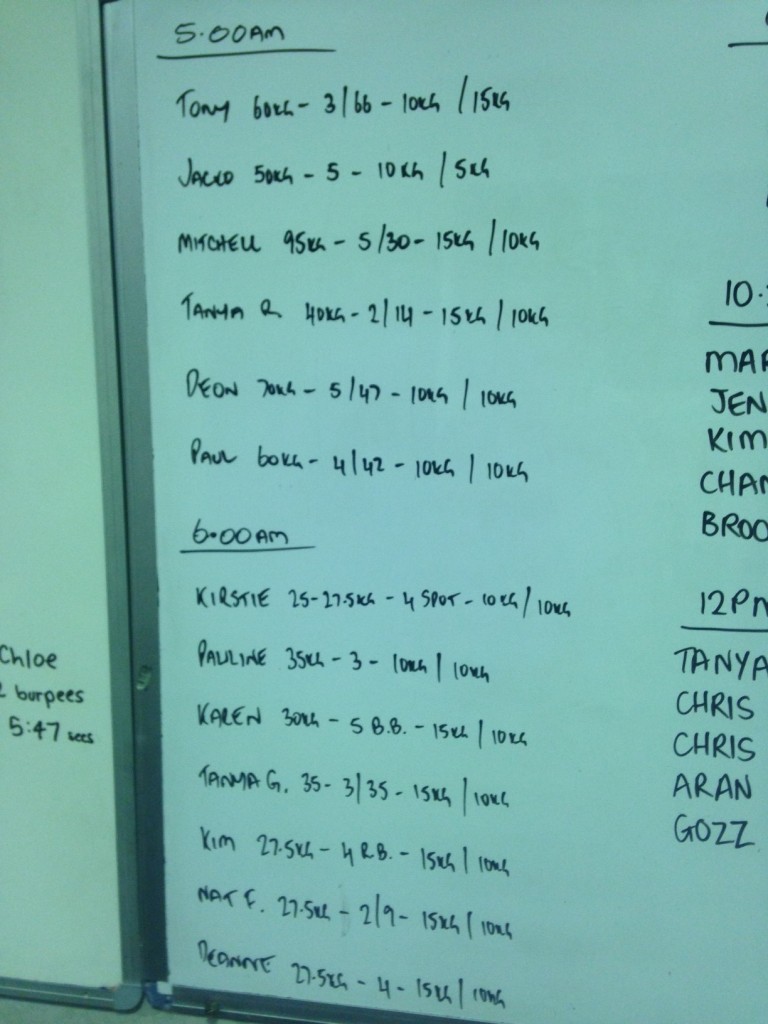 5.00AM
TONY 60KG - 3/66 - 10KG / 15KG
JACKO 50KG - 5 - 10KG / 5KG
MITCHELL 95KG - 5/30 - 15KG / 10KG
TANYA R 40KG - 2/14 - 15KG / 10KG
DEON 70KG - 5/47 - 10KG / 10KG
PAUL 60KG - 4/42 - 10KG / 10KG
6.00AM
KIRSTIE 25-27.5KG - 4 SPOT - 10KG / 10KG
PAULINE 35KG - 3 - 10KG / 10KG
KAREN 30KG - 5 B.B. - 15KG / 10KG
TANYA G. 35 - 3/35 - 15KG / 10KG
KIM 27.5KG - 4 R.B. - 15KG / 10KG
NAT F. 27.5KG - 2/9 - 15KG / 10KG
DEANNE 27.5KG - 4 - 15KG / 10KG
Chloe
2 burpees
5:47 secs
10.
MAR
JEN
KIM
CHAN
BROO
12PM
TANYA
CHRIS
CHRIS
ARAN
GOZZ